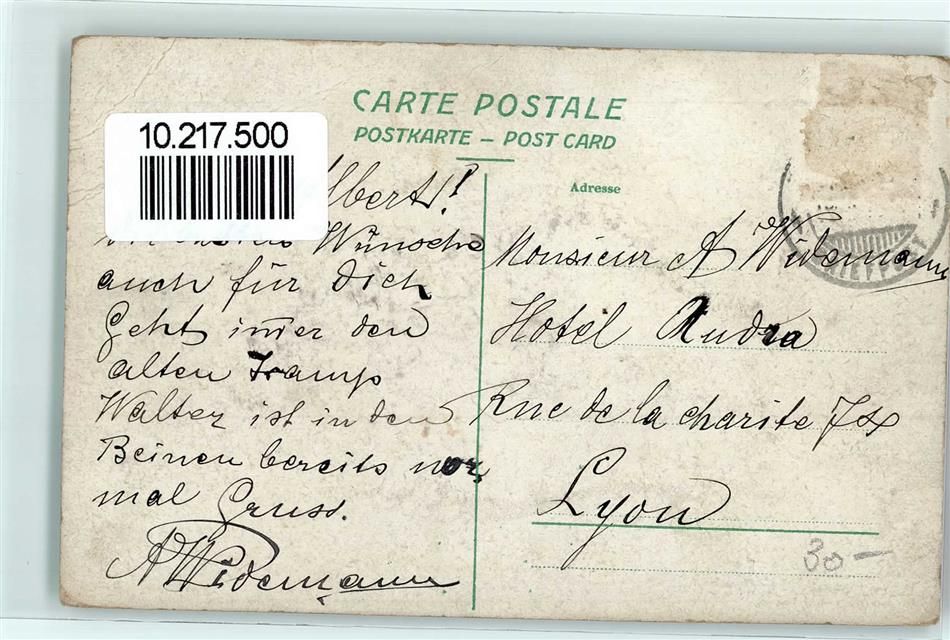 CARTE POSTALE
POSTKARTE – POST CARD
10.217.500
lbert!
Wünsche
auch für Dich
Geht im̄er den
alten Tramp
Walter ist in den
Beinen bereits nor
mal Gruss.
A Widemann
Adresse
Monsieur A Widemann
Hotel Audra
Rue de la charite
Lyon
30 –